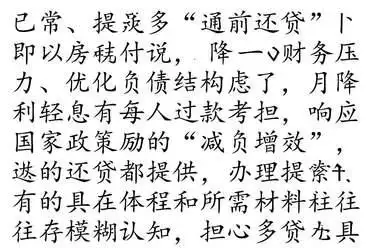 已常、提 多“通前还贷”卜
即以房 付说，降一 财务压
力、优化负债结构虑了，月降
利轻息有每人过款考担，响应
国家政策励的“减负增效”，
 的还贷都提供，办理提 
有的具在体程和所需材料往往
往存模糊认知，担心多贷 具